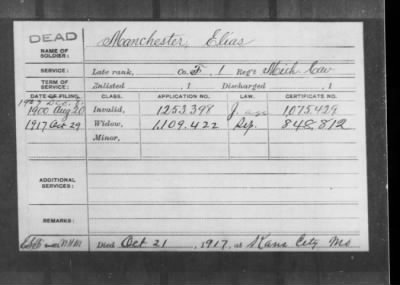 DEAD
NAME OF SOLDIER:
Manchester, Elias
SERVICE:
Late rank, Co. F, 1 Reg't Mich Cav
Enlisted , 1 Discharged , 1
DATE OF FILING. CLASS. APPLICATION NO. LAW. CERTIFICATE NO.
1900 Aug 20 Invalid, 1253.398 1075.429
1917 Oct 29 Widow, 1.109.422 848.812
Minor,
ADDITIONAL SERVICES:
REMARKS:
Died Oct 21, 1917, at Kans City Mo